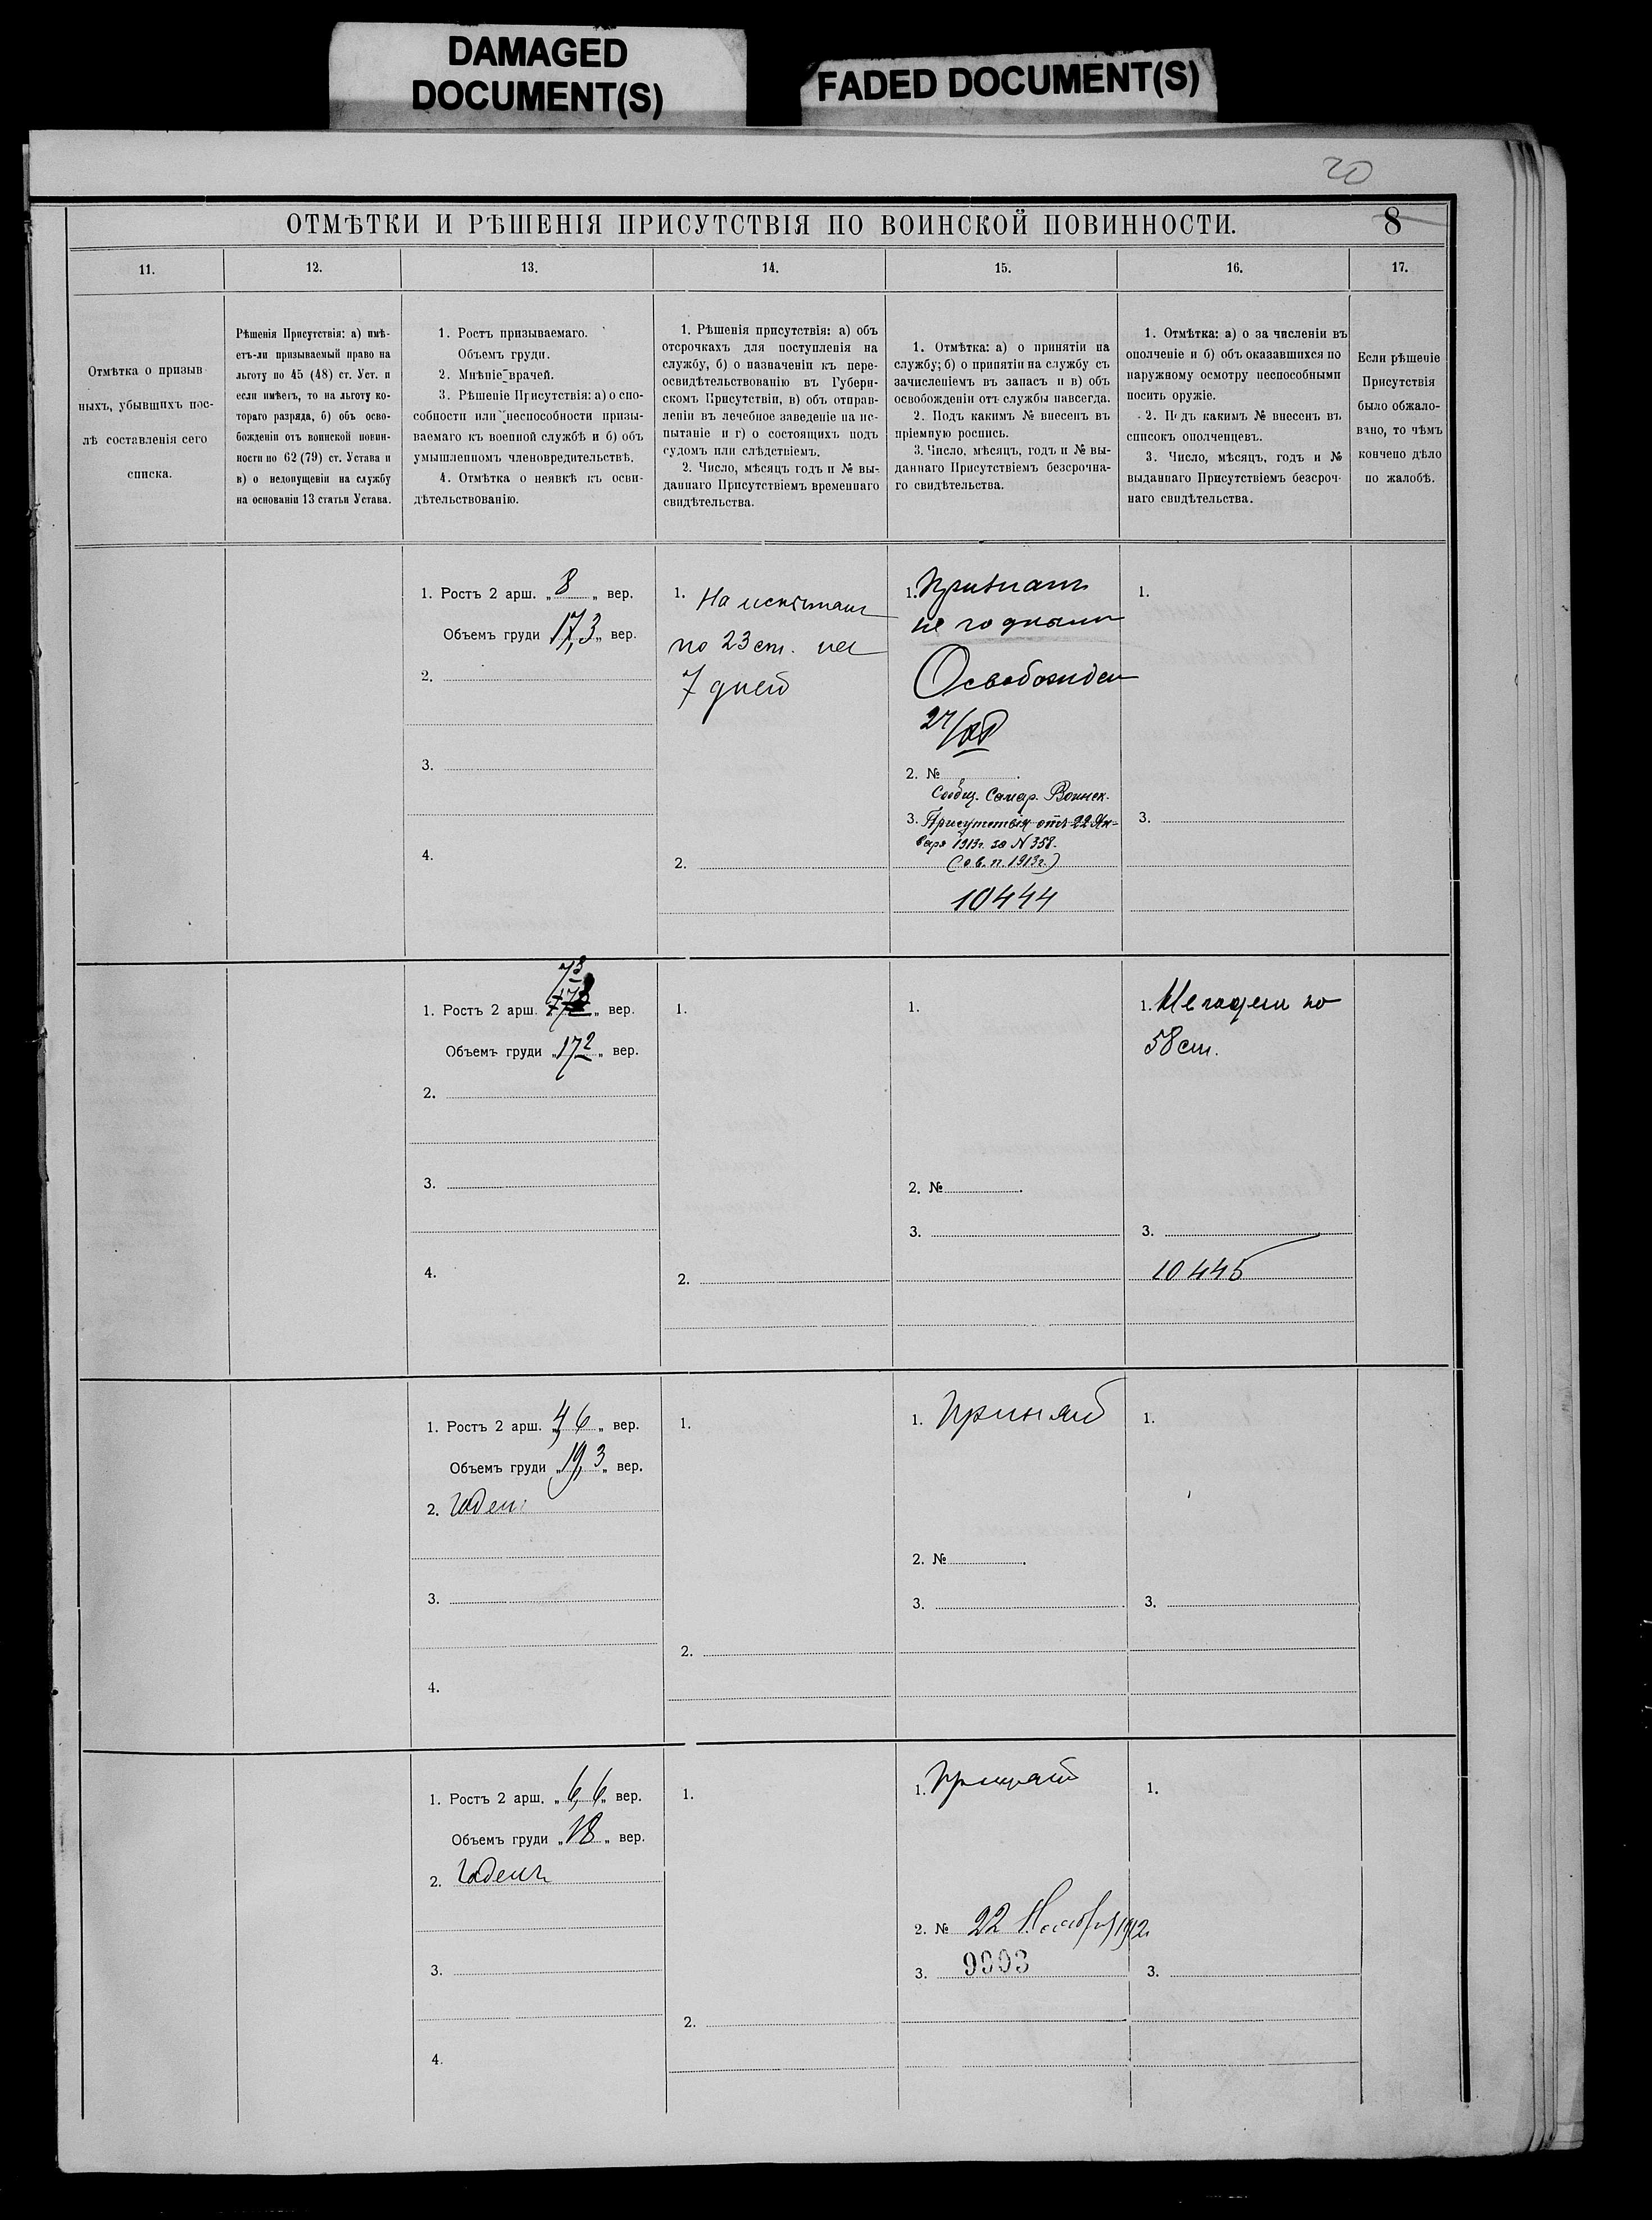 DAMAGED
DOCUMENT(S)
FADED DOCUMENT(S)
20
ОТМѢТКИ И РѢШЕНІЯ ПРИСУТСТВІЯ ПО ВОИНСКОЙ ПОВИННОСТИ.
8
11.
12.
13.
14.
15.
16.
17.
Отмѣтка о призыв-
ныхъ, убывшихъ пос-
лѣ составленія сего
списка.
Рѣшенія Присутствія: а) имѣ-
етъ-ли призываемый право на
льготу по 45 (48) ст. Уст. и
если имѣетъ, то на льготу ко-
тораго разряда, б) объ осво-
божденіи отъ воинской повин-
ности по 62 (79) ст. Устава и
в) о недопущеніи на службу
на основаніи 13 статьи Устава.
1. Ростъ призываемаго.
Объемъ груди.
2. Мнѣніе врачей.
3. Рѣшеніе Присутствія: а) о спо-
собности или неспособности призы-
ваемаго къ военной службѣ и б) объ
умышленномъ членовредительствѣ.
4. Отмѣтка о неявкѣ къ осви-
дѣтельствованію.
1. Рѣшенія присутствія: а) объ
отсрочкахъ для поступленія на
службу, б) о назначеніи къ пере-
освидѣтельствованію въ Губерн-
скомъ Присутствіи, в) объ отправ-
леніи въ лечебное заведеніе на ис-
пытаніе и г) о состоящихъ подъ
судомъ или слѣдствіемъ.
2. Число, мѣсяцъ годъ и № вы-
даннаго Присутствіемъ временнаго
свидѣтельства.
1. Отмѣтка: а) о принятіи на
службу; б) о принятіи на службу съ
зачисленіемъ въ запасъ и в) объ
освобожденіи отъ службы навсегда.
2. Подъ какимъ № внесенъ въ
пріемную роспись.
3. Число, мѣсяцъ, годъ и № вы-
даннаго Присутствіемъ безсрочна-
го свидѣтельства.
1. Отмѣтка: а) о за численіи въ
ополченіе и б) объ оказавшихся по
наружному осмотру неспособными
носить оружіе.
2. Подъ какимъ № внесенъ въ
списокъ ополченцевъ.
3. Число, мѣсяцъ, годъ и №
выданнаго Присутствіемъ безсроч-
наго свидѣтельства.
Если рѣшеніе
Присутствія
было обжало-
вано, то чѣмъ
кончено дѣло
по жалобѣ.
1. Ростъ 2 арш. „ 8 „ вер.
Объемъ груди 17,3 „ вер.
2.
3.
4.
1. На испытан
по 23 ст. на
7 дней
2.
1. Признанъ
не годным
Освобожден
27/XII
2. №
Сообщ. Самар. Воинск.
3. Присутствія отъ 22 Ян-
варя 1913г. за N 358.
(о в. п. 1913г.)
10444
1.
3.
1. Ростъ 2 арш. „ 7 8 „ вер.
Объемъ груди „ 17 2 „ вер.
2.
3.
4.
1.
2.
1.
2. №
3.
1. Не годен по
58 ст.
3.
10445
1. Ростъ 2 арш. „ 4 6 „ вер.
Объемъ груди „ 19,3 „ вер.
2. Годен
3.
4.
1.
2.
1. Принят
2. №
3.
1.
3.
1. Ростъ 2 арш. „ 6,6 „ вер.
Объемъ груди „ 18 „ вер.
2. Годенъ
3.
4.
1.
2.
1. Принят
2. № 22 Ноября 1912
3. 9903
1.
3.